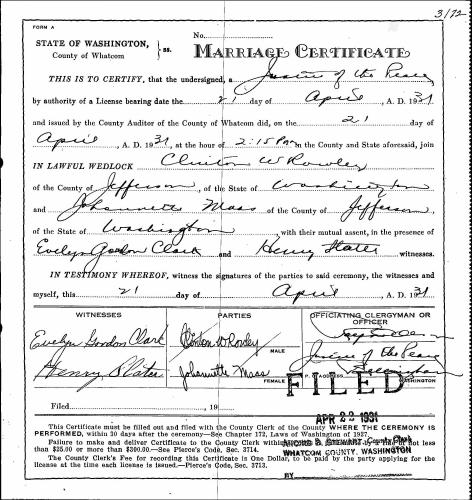 3172
FORM A
No.
STATE OF WASHINGTON,
County of Whatcom
} ss.
MARRIAGE CERTIFICATE
THIS IS TO CERTIFY, that the undersigned, a Justice of the Peace
by authority of a License bearing date the 21 day of April, A. D. 1931
and issued by the County Auditor of the County of Whatcom did, on the 21 day of
April, A. D. 1931, at the hour of 2:15 Pm in the County and State aforesaid, join
IN LAWFUL WEDLOCK Clinton W Rowley
of the County of Jefferson, of the State of Washington
and Johannette Maas of the County of Jefferson,
of the State of Washington with their mutual assent, in the presence of
Evelyn Gordon Clark and Henry Slater witnesses.
IN TESTIMONY WHEREOF, witness the signatures of the parties to said ceremony, the witnesses and
myself, this 21 day of April, A. D. 1931
WITNESSES PARTIES OFFICIATING CLERGYMAN OR OFFICER
Evelyn Gordon Clark Clinton W Rowley
MALE
Justice of the Peace
Henry Slater Johannette Maas
FEMALE
P. O. ADDRESS Bellingham WASHINGTON
FILED
Filed, 19
APR 22 1931
This Certificate must be filled out and filed with the County Clerk of the County WHERE THE CEREMONY IS
PERFORMED, within 30 days after the ceremony—See Chapter 172, Laws of Washington of 1927.
Failure to make and deliver Certificate to the County Clerk within by a fine of not less
than $25.00 or more than $300.00—See Pierce's Code, Sec. 3714.
STEWART, County Clerk
WHATCOM COUNTY, WASHINGTON
The County Clerk's Fee for recording this Certificate is One Dollar, to be paid by the party applying for the
license at the time each license is issued.—Pierce's Code, Sec. 3713.
BY